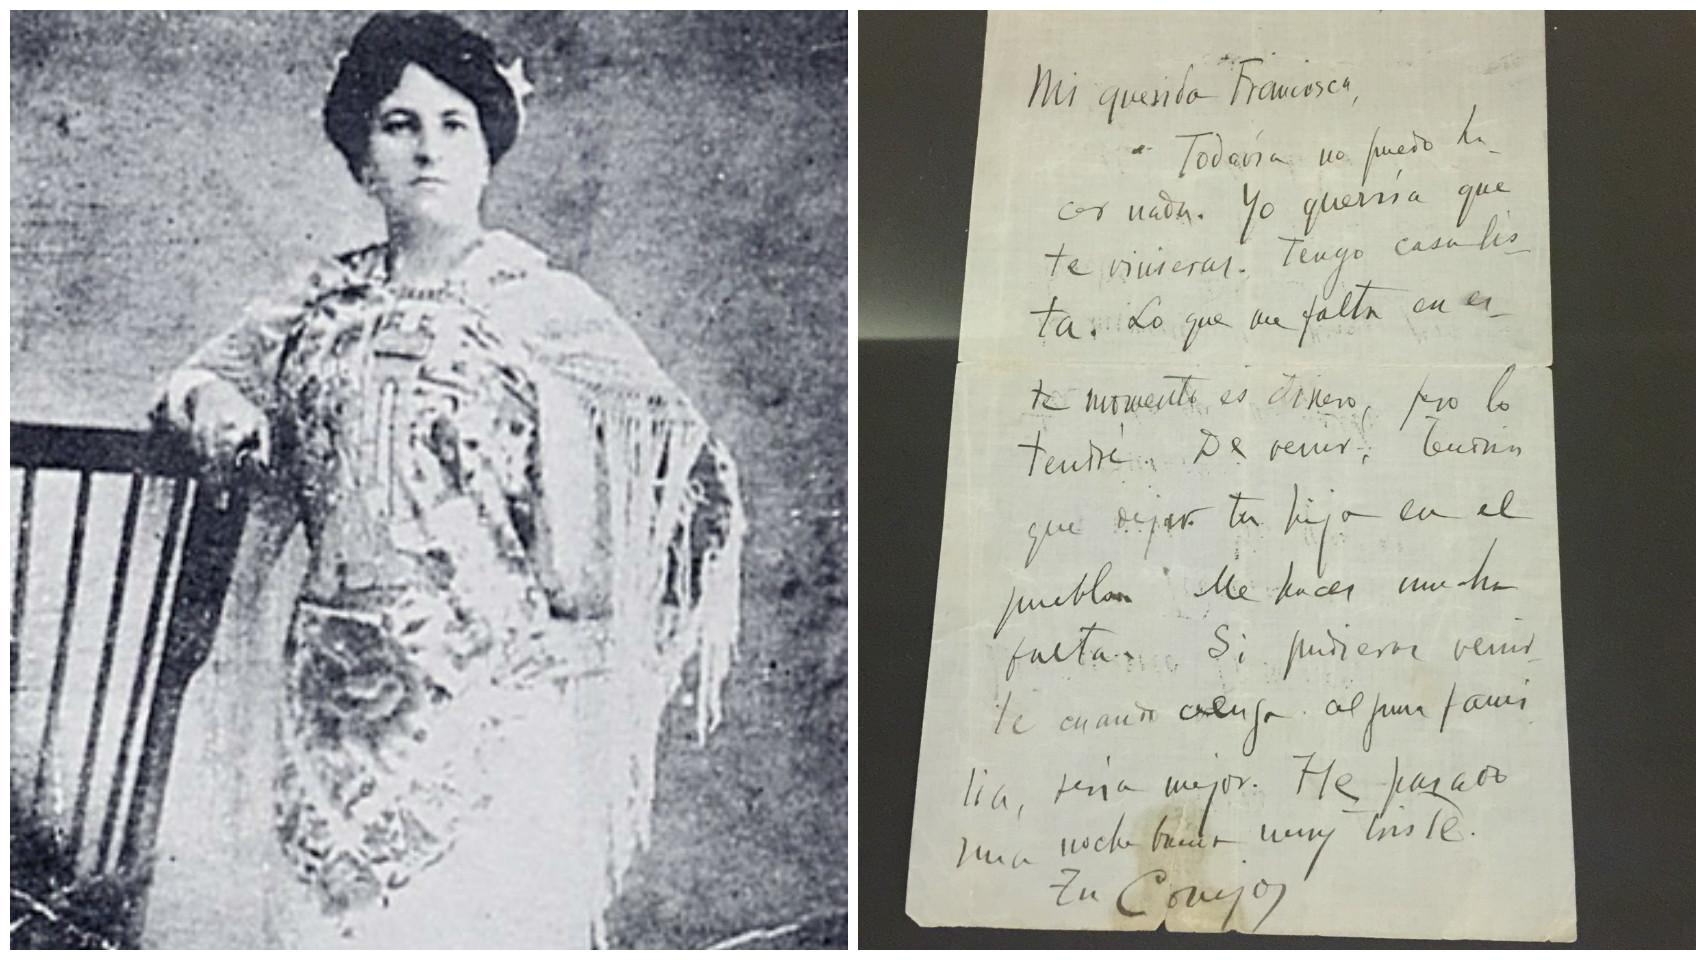 Mi querida Francisca,
Todavía no puedo ha-
cer nada. Yo querría que
te vinieras. Tengo casa lis-
ta. Lo que me falta en es-
te momento es dinero, pero lo
tendré. De venir, tendría
que dejar tu hijo en el
pueblo. Me haces mucha
falta. Si pudieras venir-
te cuando venga alguna fami
lia, sería mejor. He pasado
una noche buena muy triste.
Tu Conejo